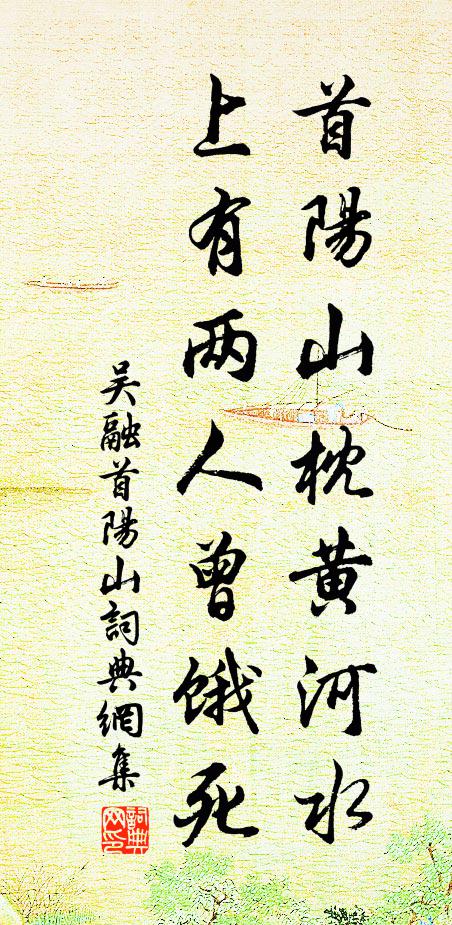 首陽山枕黄河水
上有两人曾饿死
吴融首陽山詞典網集
詞典
网印